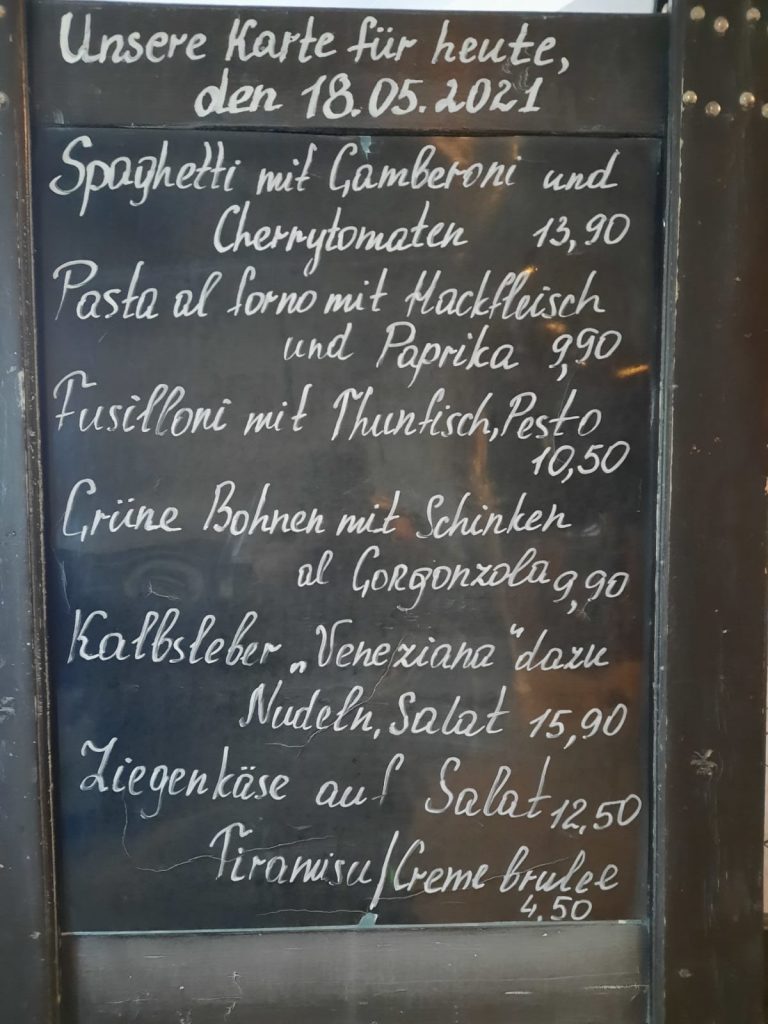 Unsere Karte für heute,
den 18.05.2021
Spaghetti mit Gamberoni und
Cherrytomaten 13,90
Pasta al forno mit Hackfleisch
und Paprika 9,90
Fusilloni mit Thunfisch, Pesto
10,50
Grüne Bohnen mit Schinken
al Gorgonzola 9,90
Kalbsleber „Veneziana" dazu
Nudeln, Salat 15,90
Ziegenkäse auf Salat 12,50
Tiramisu/Creme brulee
4.50